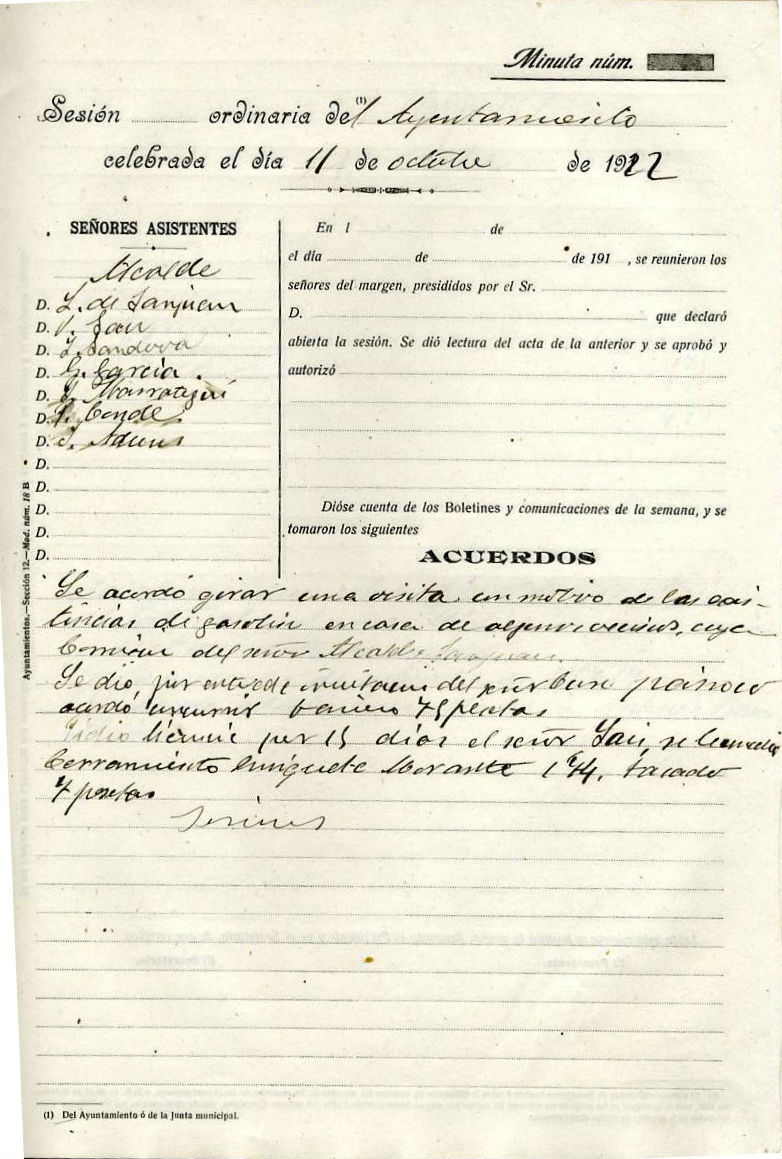 Minuta núm.
Sesión ordinaria del (1) Ayuntamiento
celebrada el día 11 de octubre de 1922
SEÑORES ASISTENTES
Alcalde
D. L. de Sanjuan
D.
D. Sandova
D. G. García
D. Marrategui
D. Conde
D.
D.
D.
D.
D.
D.
En l de
el día de de 191 , se reunieron los
señores del margen, presididos por el Sr.
D. que declaró
abierta la sesión. Se dió lectura del acta de la anterior y se aprobó y
autorizó
Dióse cuenta de los Boletines y comunicaciones de la semana, y se
tomaron los siguientes
ACUERDOS
Se acordó girar una visita con motivo de las exis-
tencias de gasolina en casa de algunos vecinos, cuya
Comisión del señor Alcalde
Se dió del señor Cura párroco
acordó 75 pesetas
Pidió licencia por 15 días el señor
Cerramiento Enriqueta Morante 174, tasado
7 pesetas
Ayuntamientos.—Sección 12.—Mod. núm. 18 B
(1) Del Ayuntamiento ó de la Junta municipal.